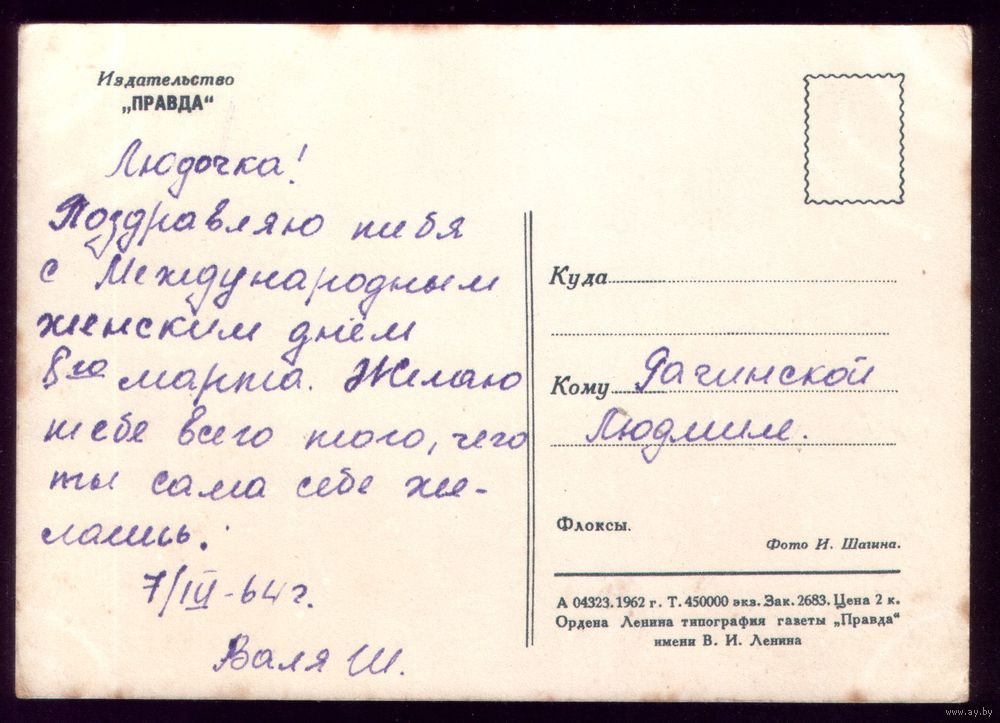 Издательство
„ПРАВДА“
Людочка!
Поздравляю тебя
с Международным
женским днём
8го марта. Желаю
тебе всего того, чего
ты сама себе же-
лаешь.
7/III-64г.
Валя Ш.
Куда
Кому Рагинской
Людмиле.
Флоксы.
Фото И. Шагина.
А 04323. 1962 г. Т. 450000 экз. Зак. 2683. Цена 2 к.
Ордена Ленина типография газеты „Правда“
имени В. И. Ленина
www.ay.by